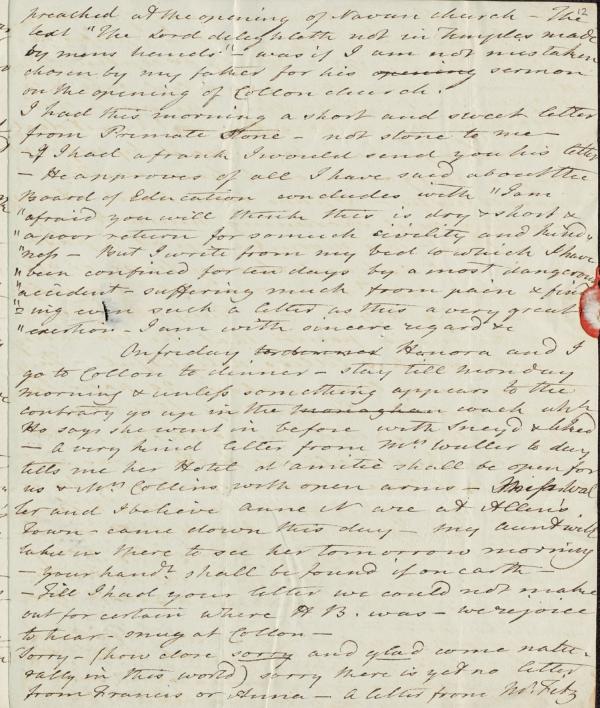 12
preached at the opening of Navan church - The
text "The Lord delighteth not in temples made
by mens hands" was if I am not mistaken
chosen by my father for his opening sermon
on the opening of Collon church.
I had this morning a short and sweet letter
from Primate Stone - not stone to me -
- If I had a frank I would send you his letter
- He approves of all I have said about the
Board of Education concludes with "I am
"afraid you will think this is dry & short &
"a poor return for so much civility and kind
"ness - But I write from my bed to which I have
"been confined for ten days by a most dangerous
"accident - suffering much from pain & find
"ing even such a letter as this a very great
"exertion - I am with sincere regard &c
On friday Honora and I
go to Collon to dinner - stay till monday
morning & unless something appears to the
contrary go up in the monaghan coach whh
Ho says she went in before with Sneyd & liked
- a very kind letter from Mrs Waller to day
tells me her Hotel d'amitié shall be open for
us & Mrs Collins with open arms - Miss Wal
ler and I believe anne N are at Allens
Town - came down this day - my aunt will
take us there to see her tomorrow morning
- your handt. shall be found if on earth -
- Till I had your letter we could not make
out for certain where H B. was - we rejoice
to hear - snug at Collon -
Sorry - (how close sorry and glad come natu
rally in this world) sorry there is yet no letter
from Francis or Anna - a letter from Mr. Fitz